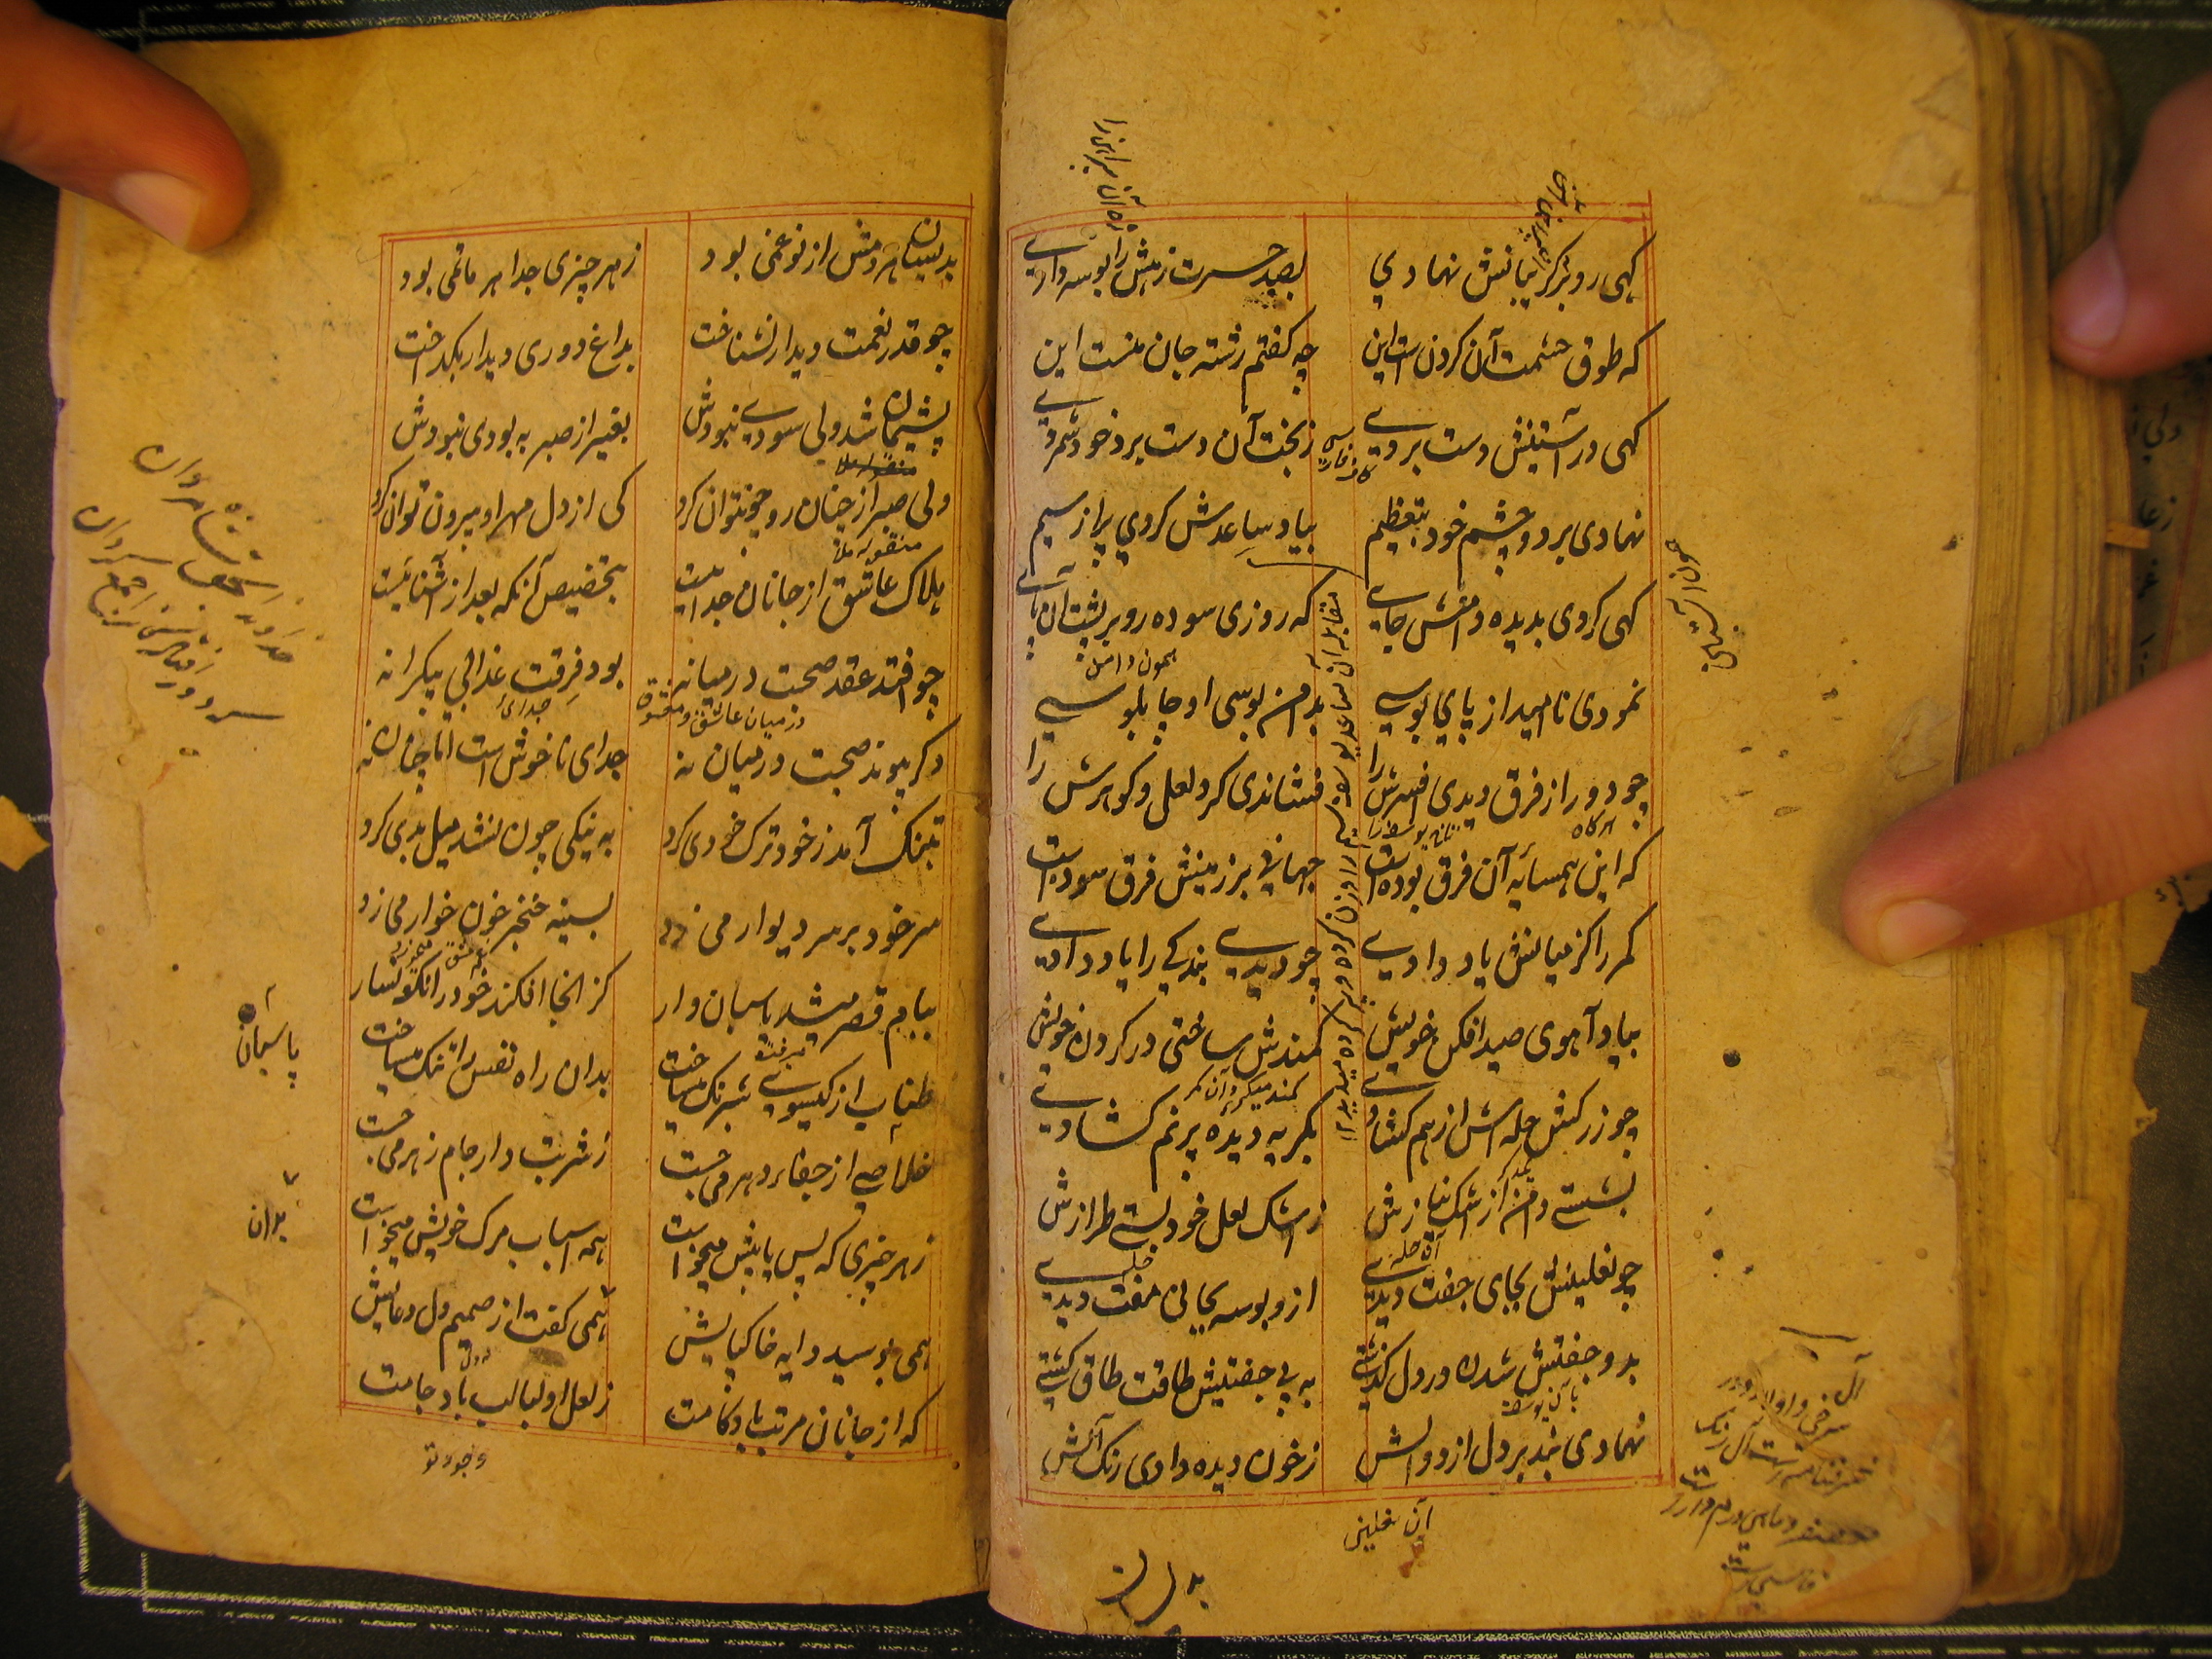 گهی رو بر گریبانش نهادی بصد حسرت زهش را بوسه دادی
که طوق حشمت آن گردن است این چه گفتم رشته جان منست این
گهی در آستینش دست بردی ز بخت آن دست برد خود شمردی
نهادی بر دو چشم خود بتعظیم بیاد ساعدش کردی پر از سیم
گهی کردی بدیده دامنش جای که روزی سوده رو بر پشت آن پای
نمودی ناامید از پای بوسی بدامن بوسی او چاپلوسی
چو دور از فرق دیدی افسرش را فشاندی گرد لعل و گوهرش را
که این همسایه آن فرق بودست جهانی بر زمینش فرق سودست
کمر را کز میانش یاد دادی چو دیدی بندگی را یاد دادی
بیاد آهوی صید افکن خویش کمندش ساختی در گردن خویش
چو زرکش حله اش از هم گشادی بگریه دیده پر نم گشادی
بشستی دامن از اشک نیازش ز اشک لعل خود بستی طرازش
چو نعلینش بجای جفت دیدی ازو بوسه بجائی مفت دیدی
بدو جفتش شده در دل گذشتی به بی جفتیش طاقت طاق گشتی
نهادی بند بر دل از دوالش ز خون دیده دادی رنگ آلش
بدینسان هر دمش از نو غمی بود ز هر چیزی جدا هر ماتمی بود
چو قدر نعمت دیدار نشناخت بداغ دوری دیدار بگداخت
پشیمان شد ولی سودی نبودش بغیر از صبر به بودی نبودش
ولی صبر از چنان رو چون توان کرد کی از دل مهر او بیرون توان کرد
هلاک عاشق از جانان جدائیست بتخصیص آنکه بعد از آشنائیست
چو افتد عقد صحبت در میانه بود فرقت عذابی بیکرانه
وگر پیوند صحبت در میان نه جدای ناخوش است اما چنان نه
بتنگ آمد ز خود ترک خودی کرد به نیکی چون نشد میل بدی کرد
سر خود بر سر دیوار می زد بسینه خنجر خون خوار می زد
ببام قصر میشد پاسبان وار کز آنجا افکند خود را نگونسار
طناب از گیسوی شبرنگ میساخت بدان راه نفس را تنگ میساخت
خلاصی از جفاء دهر می جست ز شربت دار جام زهر می جست
ز هر چیزی که پس یابیش میخواست همه اسباب مرگ خویش میخواست
همی بوسید دایه خاک پایش همی گفت از صمیم دل دعایش
که از جانان مرتب باد کامت ز لعل او لبالب باد جامت
پاسبان
بدان
وجود تو
آن نعلین